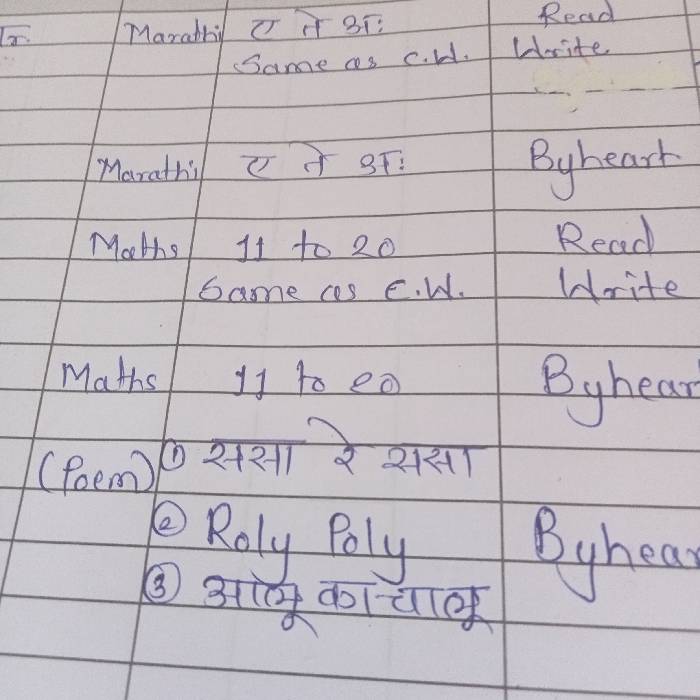 Marathi ए ते अः Read
Same as C.W. Write
Marathi ए ते अः Byheart
Maths 11 to 20 Read
Same as C.W. Write
Maths 11 to 20 Byhear
(Poem) ① ससा रे ससा
② Roly Poly Byhear
③ आलू काचालू